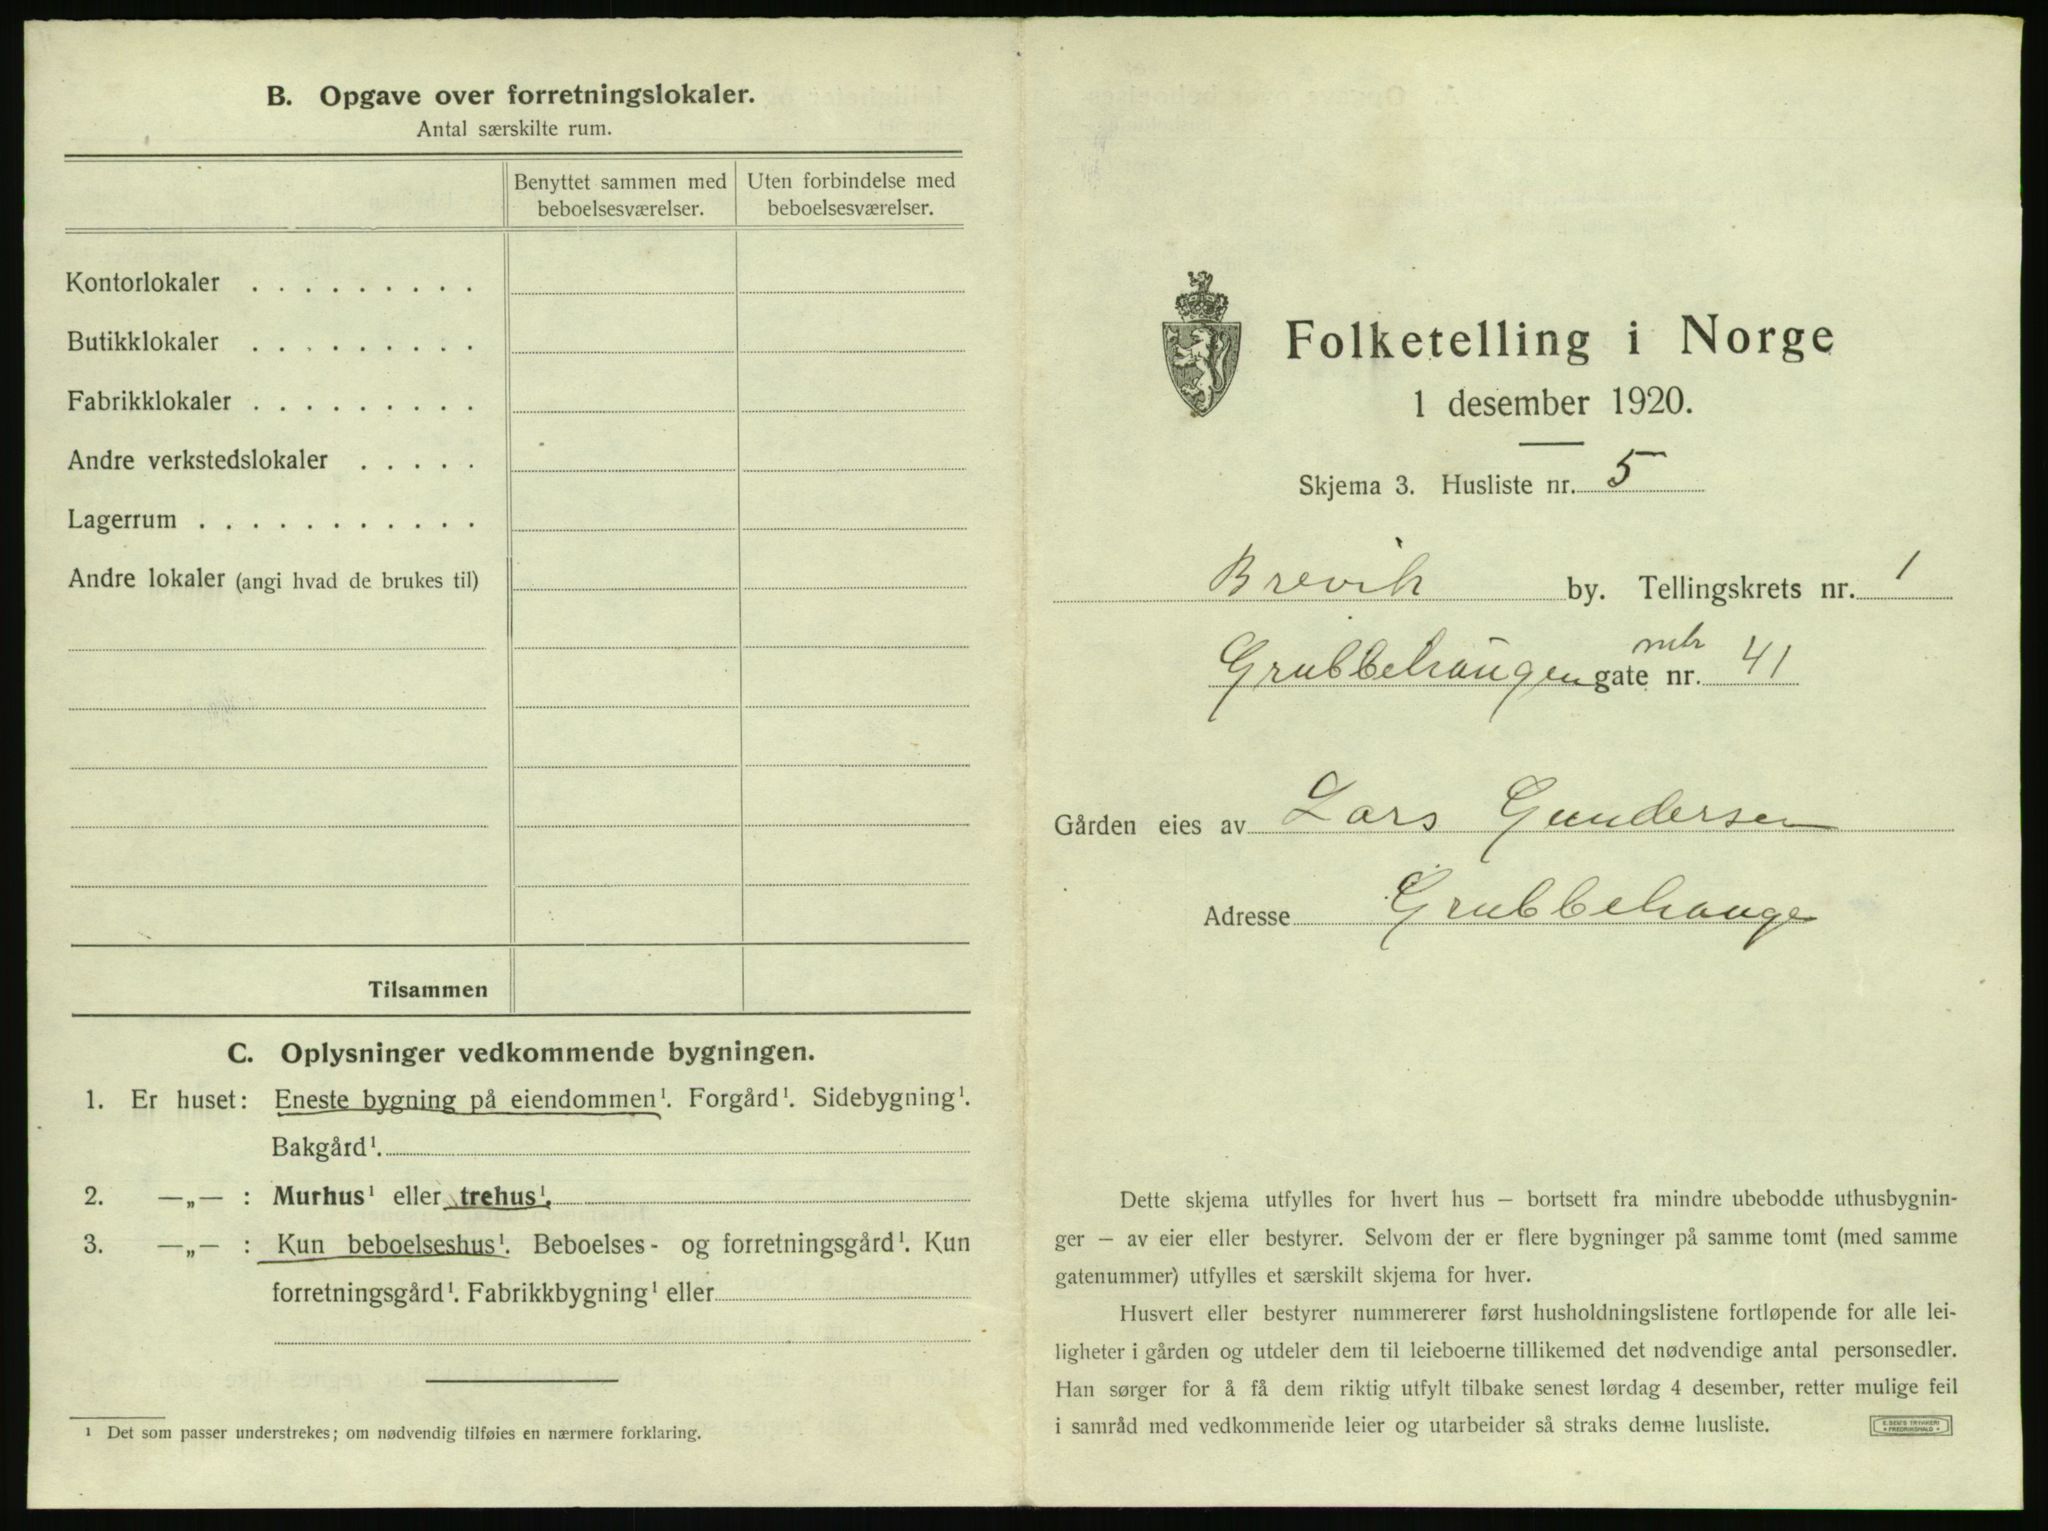 B. Opgave over forretningslokaler.
Antal særskilte rum.
Benyttet sammen med beboelsesværelser.
Uten forbindelse med beboelsesværelser.
Kontorlokaler . . . . . . . . .
Butikklokaler . . . . . . . . .
Fabrikklokaler . . . . . . . . .
Andre verkstedslokaler . . . . .
Lagerrum . . . . . . . . . . .
Andre lokaler (angi hvad de brukes til)
Tilsammen
C. Oplysninger vedkommende bygningen.
1. Er huset: Eneste bygning på eiendommen¹. Forgård¹. Sidebygning¹.
Bakgård¹.
2. —„— : Murhus¹ eller trehus¹.
3. —„— : Kun beboelseshus¹. Beboelses- og forretningsgård¹. Kun
forretningsgård¹. Fabrikkbygning¹ eller
¹ Det som passer understrekes; om nødvendig tilføies en nærmere forklaring.
Folketelling i Norge
1 desember 1920.
Skjema 3. Husliste nr. 5
Brevik by. Tellingskrets nr. 1
mtr
Grubbehaugen gate nr. 41
Gården eies av Lars Gundersen
Adresse Grubbehauge
Dette skjema utfylles for hvert hus — bortsett fra mindre ubebodde uthusbygnin-
ger — av eier eller bestyrer. Selvom der er flere bygninger på samme tomt (med samme
gatenummer) utfylles et særskilt skjema for hver.
Husvert eller bestyrer nummererer først husholdningslistene fortløpende for alle lei-
ligheter i gården og utdeler dem til leieboerne tillikemed det nødvendige antal personsedler.
Han sørger for å få dem riktig utfylt tilbake senest lørdag 4 desember, retter mulige feil
i samråd med vedkommende leier og utarbeider så straks denne husliste.
E. SEM'S TRYKKERI
FREDRIKSHALD